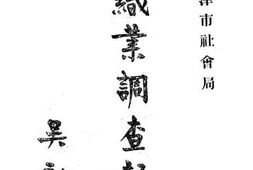 津市社會局
織業調查
吳